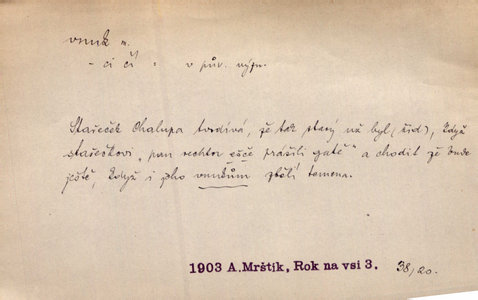 vnuk m.
- ci čí v pův. význ.
Stařeček Chalupa tvrdívá, že tak starý už byl (žid), když
stařečkovi „pan rechtor ešče prášili gatě“ a chodit že bude
ještě, když i jeho vnukům zbělí temena.
1903 A. Mrštík, Rok na vsi 3. 38/20.